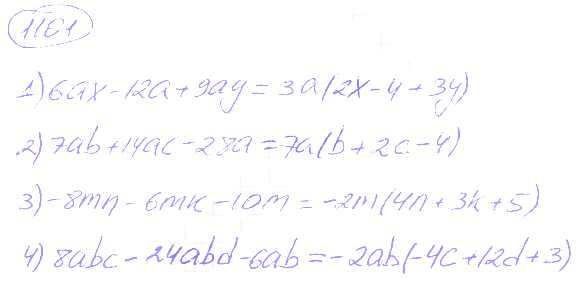 1161
1) 6ax - 12a + 9ay = 3a(2x - 4 + 3y)
2) 7ab + 14ac - 28a = 7a(b + 2c - 4)
3) -8mn - 6mk - 10m = -2m(4n + 3k + 5)
4) 8abc - 24abd - 6ab = -2ab(-4c + 12d + 3)